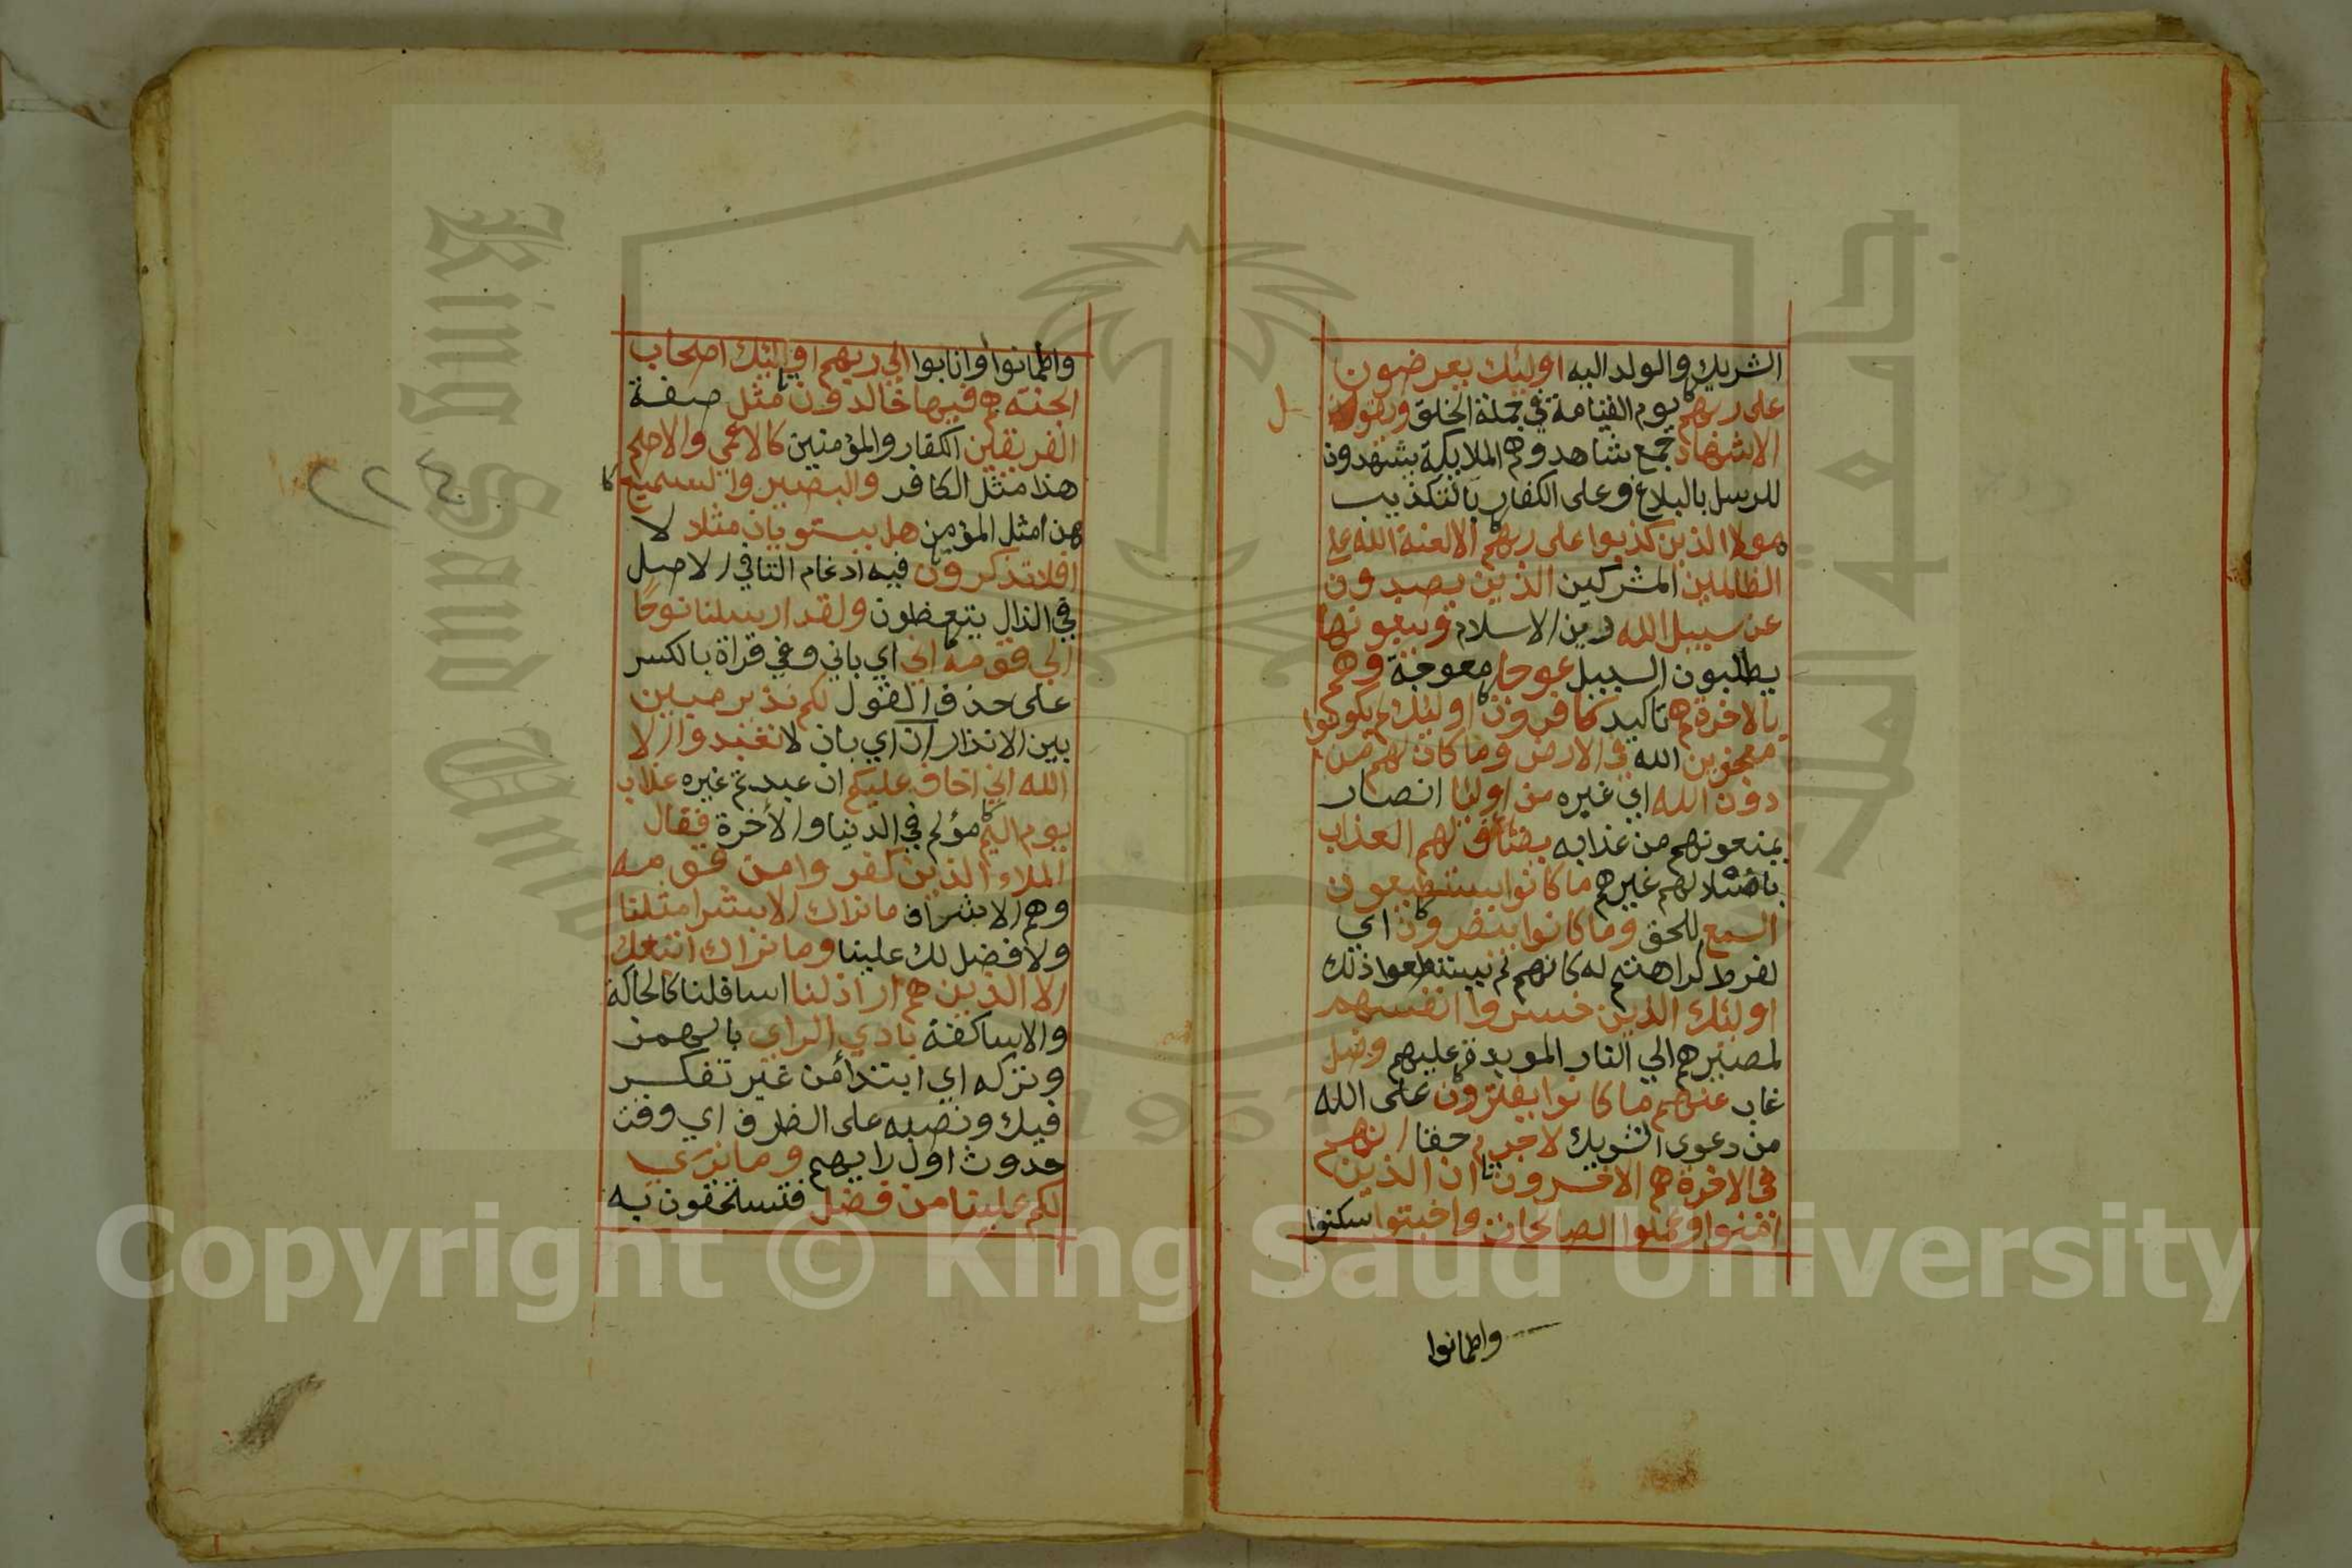 الشريك والولد اليه اوليئك يعرضون
على ربهم يوم القيامة في جملة الخلق ويقول
الاشهاد جمع شاهد وهم الملايكة يشهدون
للرسل بالبلاغ وعلى الكفار بالتكذيب
هولا الذين كذبوا على ربهم الا لعنة الله على
الظالمين المشركين الذين يصدون
عن سبيل الله دين الاسلام ويبغونها
يطلبون السبيل عوجا معوجة وهم
بالاخرة هم تاكيد كافرون اوليئك لم يكونوا
معجزين الله في الارض وما كان لهم من
دون الله اي غيره من اوليا انصار
يمنعونهم من عذابه يضاعف لهم العذاب
باضلالهم غيرهم ما كانوا يستطيعون
السمع للحق وما كانوا يبصرون اي
لفرط كراهتهم له كانهم لم يستطعوا ذلك
اوليئك الذين خسروا انفسهم
لمصيرهم الي النار الموبدة عليهم وضل
غاب عنهم ما كانوا يفترون على الله
من دعوى الشريك لا جرم حقا انهم
في الاخرة هم الاخسرون ان الذين
امنوا وعملوا الصالحات واخبتوا سكنوا
واطمانوا
واطمانوا وانابوا الي ربهم اوليئك اصحاب
الجنة هم فيها خالدون مثل صفة
الفريقين الكفار والمؤمنين كالاعمي والاصم
هذا مثل الكافر والبصير والسميع
هذا مثل المؤمن هل يستويان مثلا لا
افلا تذكرون فيه ادغام التا في الاصل
في الذال يتعظون ولقد ارسلنا نوحًا
الي قومه اني اي باني وفي قراة بالكسر
على حذف القول لكم نذير مبين
بين الانذار ان اي بان لا تعبدوا الا
الله اني اخاف عليكم ان عبدتم غيره عذاب
يوم اليم مؤلم في الدنيا والاخرة فقال
الملاء الذين كفروا من قومه
وهم الاشراف ما نراك الا بشرا مثلنا
ولا فضل لك علينا وما نراك اتبعك
الا الذين هم اراذلنا اسافلنا كالحاكة
والاساكفة بادي الراي بالهمز
وتركه اي ابتدأ من غير تفكر
فيك ونصبه على الظرف اي وقت
حدوث اول رايهم وما نرى
لكم علينا من فضل فتستحقون به
٢٢٤
King Saud University
جامعة الملك
1957
Copyright © King Saud University